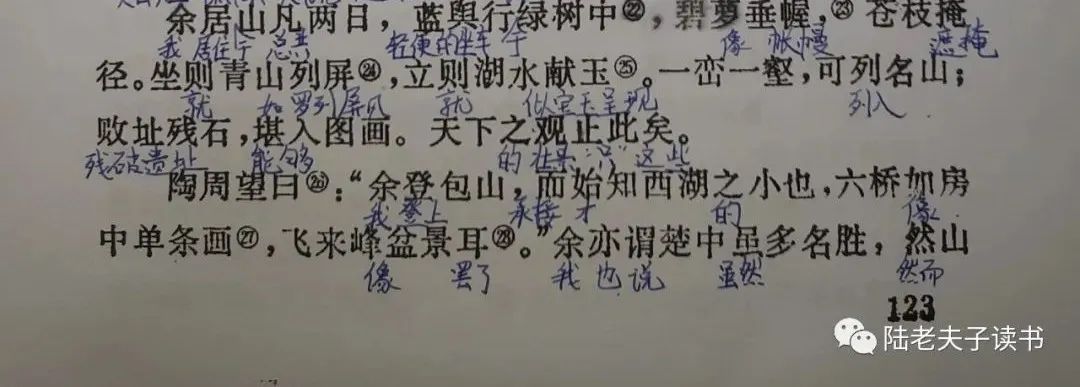 余居山凡两日，蓝舆行绿树中㉒，碧萝垂幄，㉓苍枝掩
我 居住于 总共 轻便的坐车 于 像 帐幔 遮掩
径。坐则青山列屏㉔，立则湖水献玉㉕。一峦一壑，可列名山；
就 如罗列屏风 就 似宝玉呈现 列入
败址残石，堪入图画。天下之观止此矣。
残破遗址 能够 的壮景 只 这些
陶周望曰㉖：“余登包山，而始知西湖之小也，六桥如房
我登上 承接 才 的 像
中单条画㉗，飞来峰盆景耳㉘。”余亦谓楚中虽多名胜，然山
像 罢了 我也说 虽然 然而
123
陆老夫子读书